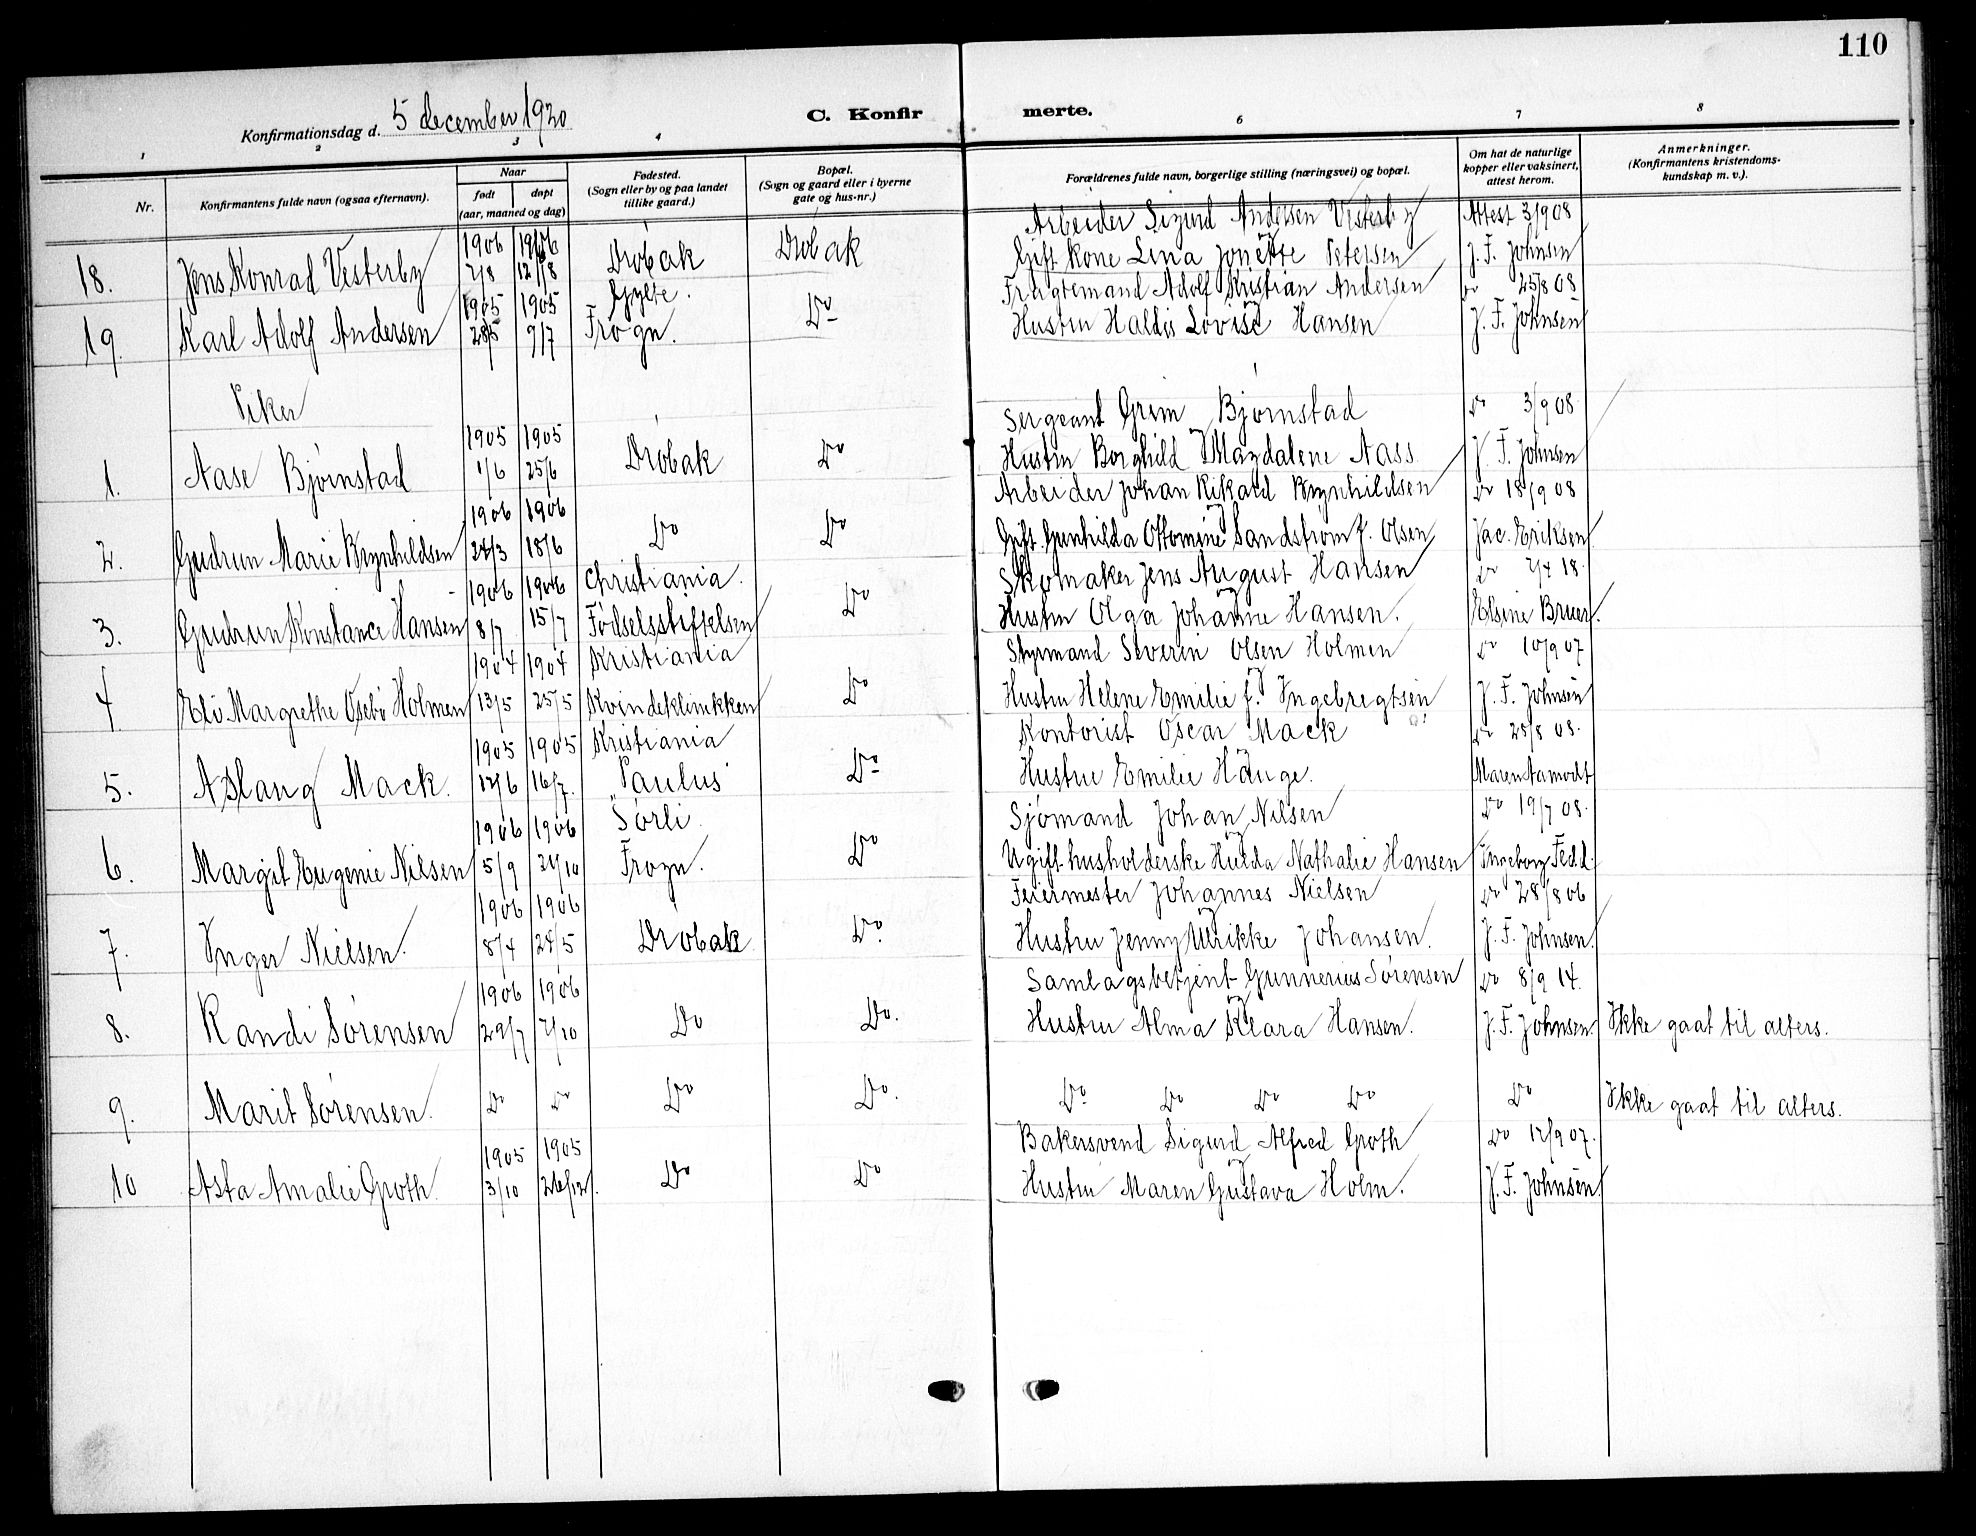 110
Konfirmationsdag d. 5 december 1920
C. Konfirmerte.
1 2 3 4 6 7 8
Nr.
Konfirmantens fulde navn (ogsaa efternavn).
Naar
født døpt
(aar, maaned og dag)
Fødested.
(Sogn eller by og paa landet
tillike gaard.)
Bopæl.
(Sogn og gaard eller i byerne
gate og hus-nr.)
Forældrenes fulde navn, borgerlige stilling (næringsvei) og bopæl.
Om hat de naturlige
kopper eller vaksinert,
attest herom.
Anmerkninger.
(Konfirmantens kristendoms-
kundskap m. v.).
Arbeider Sigurd Andersen Vesterby Attest 3/9 08
1906 1906
18. Jens Konrad Vesterby 7/8 12/8 Drøbak Drøbak Gift Kone Lina Jonette Petersen J. F. Johnsen
1905 1905 Gylte. Fragtemand Adolf Kristian Andersen Do 25/8 08
19. Karl Adolf Andersen 28/5 9/7 Frogn. Do Hustru Haldis Lovise Hansen J. F. Johnsen
Piker
Sergeant Grim Bjørnstad Do 3/9 08
1905 1905
1. Aase Bjørnstad 1/6 25/6 Drøbak Do Hustru Borghild Magdalene Aass J. F. Johnsen
1906 1906 Arbeider Johan Rikard Brynhildsen Do 18/9 08
2. Gudrun Marie Brynhildsen 24/3 18/6 Do Do Gift Gunhilda Ottomine Sandstrøm f. Olsen Jac. Eriksen
1906 1906 Christiania Skomaker Jens August Hansen Do 2/4 18.
3. Gudrun Konstance Hansen 8/7 15/7 Fødselsstiftelsen Do Hustru Olga Johanne Hansen. Elsine Bruer.
1904 1904 Kristiania Styrmand Severin Olsen Holmen Do 10/9 07
4 Eli Margrethe Osebø Holmen 13/5 25/5 Kvindeklinikken Do Hustru Helene Emilie f. Ingebregtsen J. F. Johnsen
1905 1905 Kristiania Kontorist Oscar Mack Do 25/8 08.
5. Aslaug Mack. 12/6 16/7. "Paulus" Do Hustru Emilie Hauge. Maren Aamodt
1906 1906 Sørli Sjømand Johan Nilsen Do 19/7 08.
6. Margit Eugenie Nilsen 5/9 21/10 Frogn. Do Ugift husholderske Hulda Nathalie Hansen Ingeborg Fedd.
1906 1906 Feiermester Johannes Nielsen Do 28/8 06
7. Inger Nielsen. 8/4 24/5 Drøbak Do Hustru Jenny Ulrikke Johansen. J. F. Johnsen.
1906 1906 Samlagsbetjent Gunnerius Sørensen Do 8/9 14.
8. Randi Sørensen 29/7 7/10 Do Do. Hustru Alma Klara Hansen. J. F. Johnsen Ikke gaat til alters.
9. Marit Sørensen. Do Do Do Do. Do Do Do Do Do Ikke gaat til alters.
1905 1905 Bakersvend Sigurd Alfred Groth Do 12/9 07.
10 Asta Amalie Groth 3/10 26/12. Do Do Hustru Maren Gustava Holm. J. F. Johnsen.